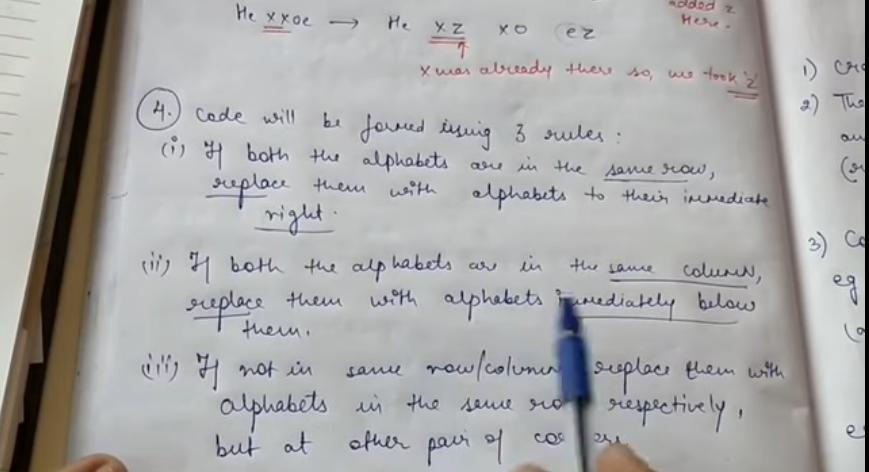 added z
Here.
He xxoe → He xz xo ez
x was already there so, we took 'z'
4. Code will be formed using 3 rules :
(i) If both the alphabets are in the same row,
replace them with alphabets to their immediate
right.
(ii) If both the alphabets are in the same column,
replace them with alphabets immediately below
them.
(iii) If not in same row/column replace them with
alphabets in the same respectively,
but at other pair of
1)
2) The
3)
eg